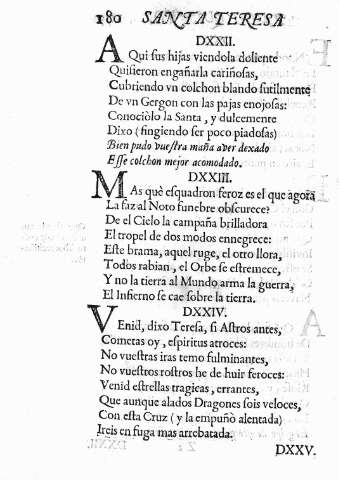 180 SANTA TERESA
DXXII.
AQui sus hijas viendola doliente
Quisieron engañarla cariñosas,
Cubriendo vn colchon blando sutilmente
De vn Gergon con las pajas enojosas:
Conociòlo la Santa, y dulcemente
Dixo (fingiendo ser poco piadosas)
Bien pudo vuestra maña aver dexado
Esse colchon mejor acomodado.
DXXIII.
MAs què esquadron feroz es el que agora
La faz al Noto funebre obscurece?
De el Cielo la campaña brilladora
El tropel de dos modos ennegrece:
Este brama, aquel ruge, el otro llora,
Todos rabian, el Orbe se estremece,
Y no la tierra al Mundo arma la guerra,
El Infierno se cae sobre la tierra.
DXXIV.
VEnid, dixo Teresa, si Astros antes,
Cometas oy, espiritus atroces:
No vuestras iras temo fulminantes,
No vuestros rostros he de huir feroces:
Venid estrellas tragicas, errantes,
Que aunque alados Dragones sois veloces,
Con esta Cruz (y la empuñò alentada)
Ireis en fuga mas arrebatada.
DXXV.